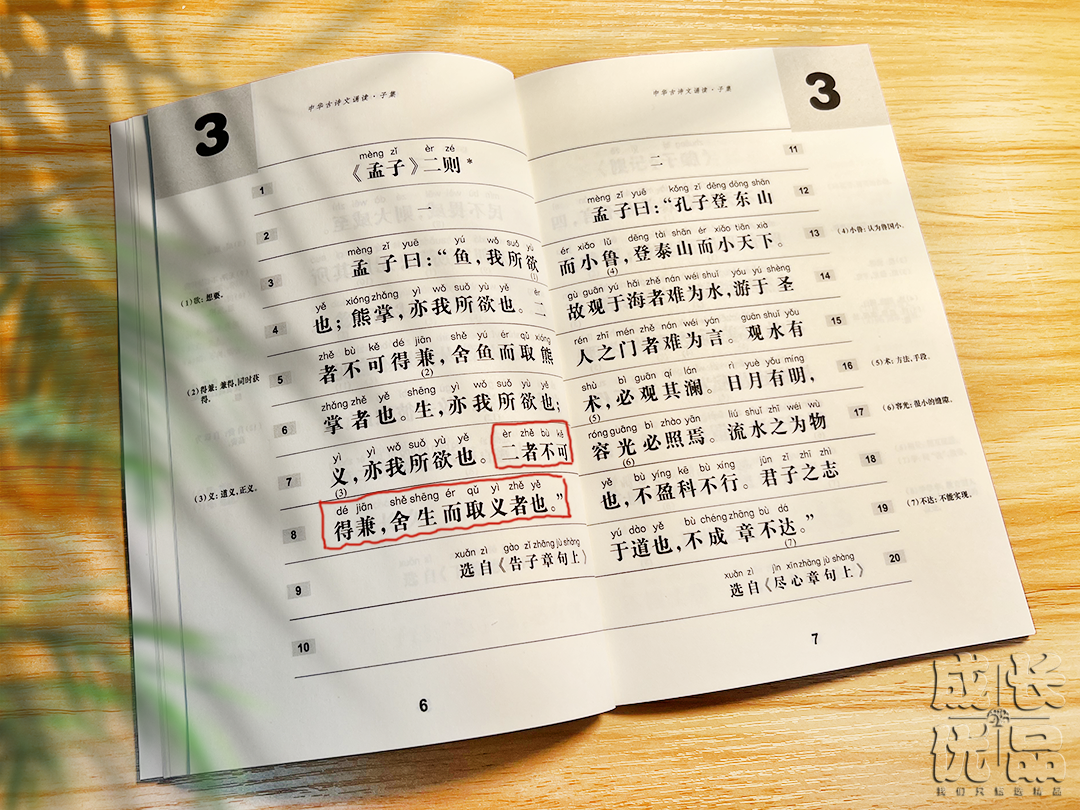 3
中华古诗文诵读·子集
mèng zǐ èr zé
《孟子》二则*
1
一
2
mèng zǐ yuē yú wǒ suǒ yù
孟子曰：“鱼，我所欲
(1)
3
(1)欲：想要。
yě xióng zhǎng yì wǒ suǒ yù yě èr
也；熊掌，亦我所欲也。二
4
zhě bù kě dé jiān shě yú ér qǔ xióng
者不可得兼，舍鱼而取熊
(2)
5
(2)得兼：兼得，同时获得。
zhǎng zhě yě shēng yì wǒ suǒ yù yě
掌者也。生，亦我所欲也；
6
yì yì wǒ suǒ yù yě èr zhě bù kě
义，亦我所欲也。二者不可
(3)
7
(3)义：道义，正义。
dé jiān shě shēng ér qǔ yì zhě yě
得兼，舍生而取义者也。”
8
xuǎn zì gào zǐ zhāng jù shàng
选自《告子章句上》
9
10
6
中华古诗文诵读·子集
3
二
11
mèng zǐ yuē kǒng zǐ dēng dōng shān
孟子曰：“孔子登东山
12
ér xiǎo lǔ dēng tài shān ér xiǎo tiān xià
而小鲁，登泰山而小天下。
(4)
13
(4)小鲁：认为鲁国小。
gù guān yú hǎi zhě nán wéi shuǐ yóu yú shèng
故观于海者难为水，游于圣
14
rén zhī mén zhě nán wéi yán guān shuǐ yǒu
人之门者难为言。观水有
15
shù bì guān qí lán rì yuè yǒu míng
术，必观其澜。日月有明，
(5)
16
(5)术：方法，手段。
róng guāng bì zhào yān liú shuǐ zhī wéi wù
容光必照焉。流水之为物
(6)
17
(6)容光：很小的缝隙。
yě bù yíng kē bù xíng jūn zǐ zhī zhì
也，不盈科不行。君子之志
18
yú dào yě bù chéng zhāng bù dá
于道也，不成章不达。”
(7)
19
(7)不达：不能实现。
xuǎn zì jìn xīn zhāng jù shàng
选自《尽心章句上》
20
7
成长
优品
我们只标选精品